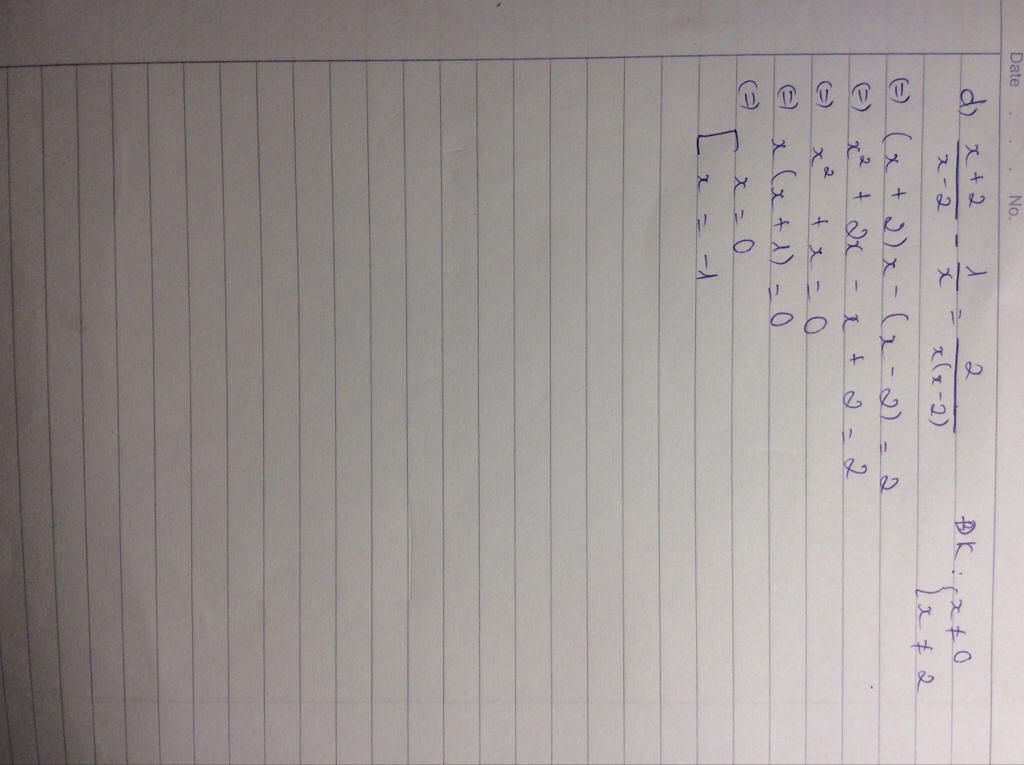 Date . . . No.
d) \frac{x+2}{x-2} - \frac{1}{x} = \frac{2}{x(x-2)} ĐK : { x ≠ 0
x ≠ 2
(=) (x + 2)x - (x - 2) = 2
(=) x² + 2x - x + 2 = 2
(=) x² + x = 0
(=) x (x + 1) = 0
(=) [ x = 0
x = -1